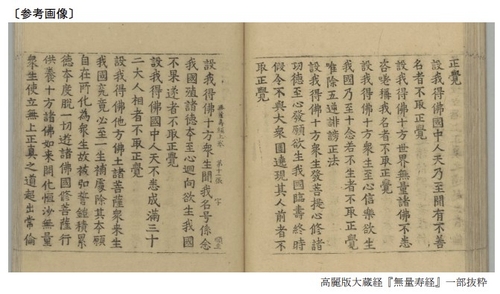 〔参考画像〕
正覺
設我得佛國中人天乃至聞有不善
名者不取正覺
設我得佛十方世界無量諸佛不悉
咨嗟稱我名者不取正覺
設我得佛十方衆生至心信樂欲生
我國乃至十念若不生者不取正覺
唯除五逆誹謗正法
設我得佛十方衆生發菩提心修諸
功德至心發願欲生我國臨壽終時
假令不與大衆圍遶現其人前者不
取正覺
設我得佛十方衆生聞我名号係念
我國殖諸德本至心迴向欲生我國
不果遂者不取正覺
設我得佛國中人天不悉成滿三十
二大人相者不取正覺
設我得佛他方佛土諸菩薩衆來生
我國究竟必至一生補處除其本願
自在所化爲衆生故被弘誓鎧積累
德本度脫一切遊諸佛國修菩薩行
供養十方諸佛如來開化恒沙無量
衆生使立無上正真之道超出常倫
高麗版大蔵経『無量寿経』一部抜粋